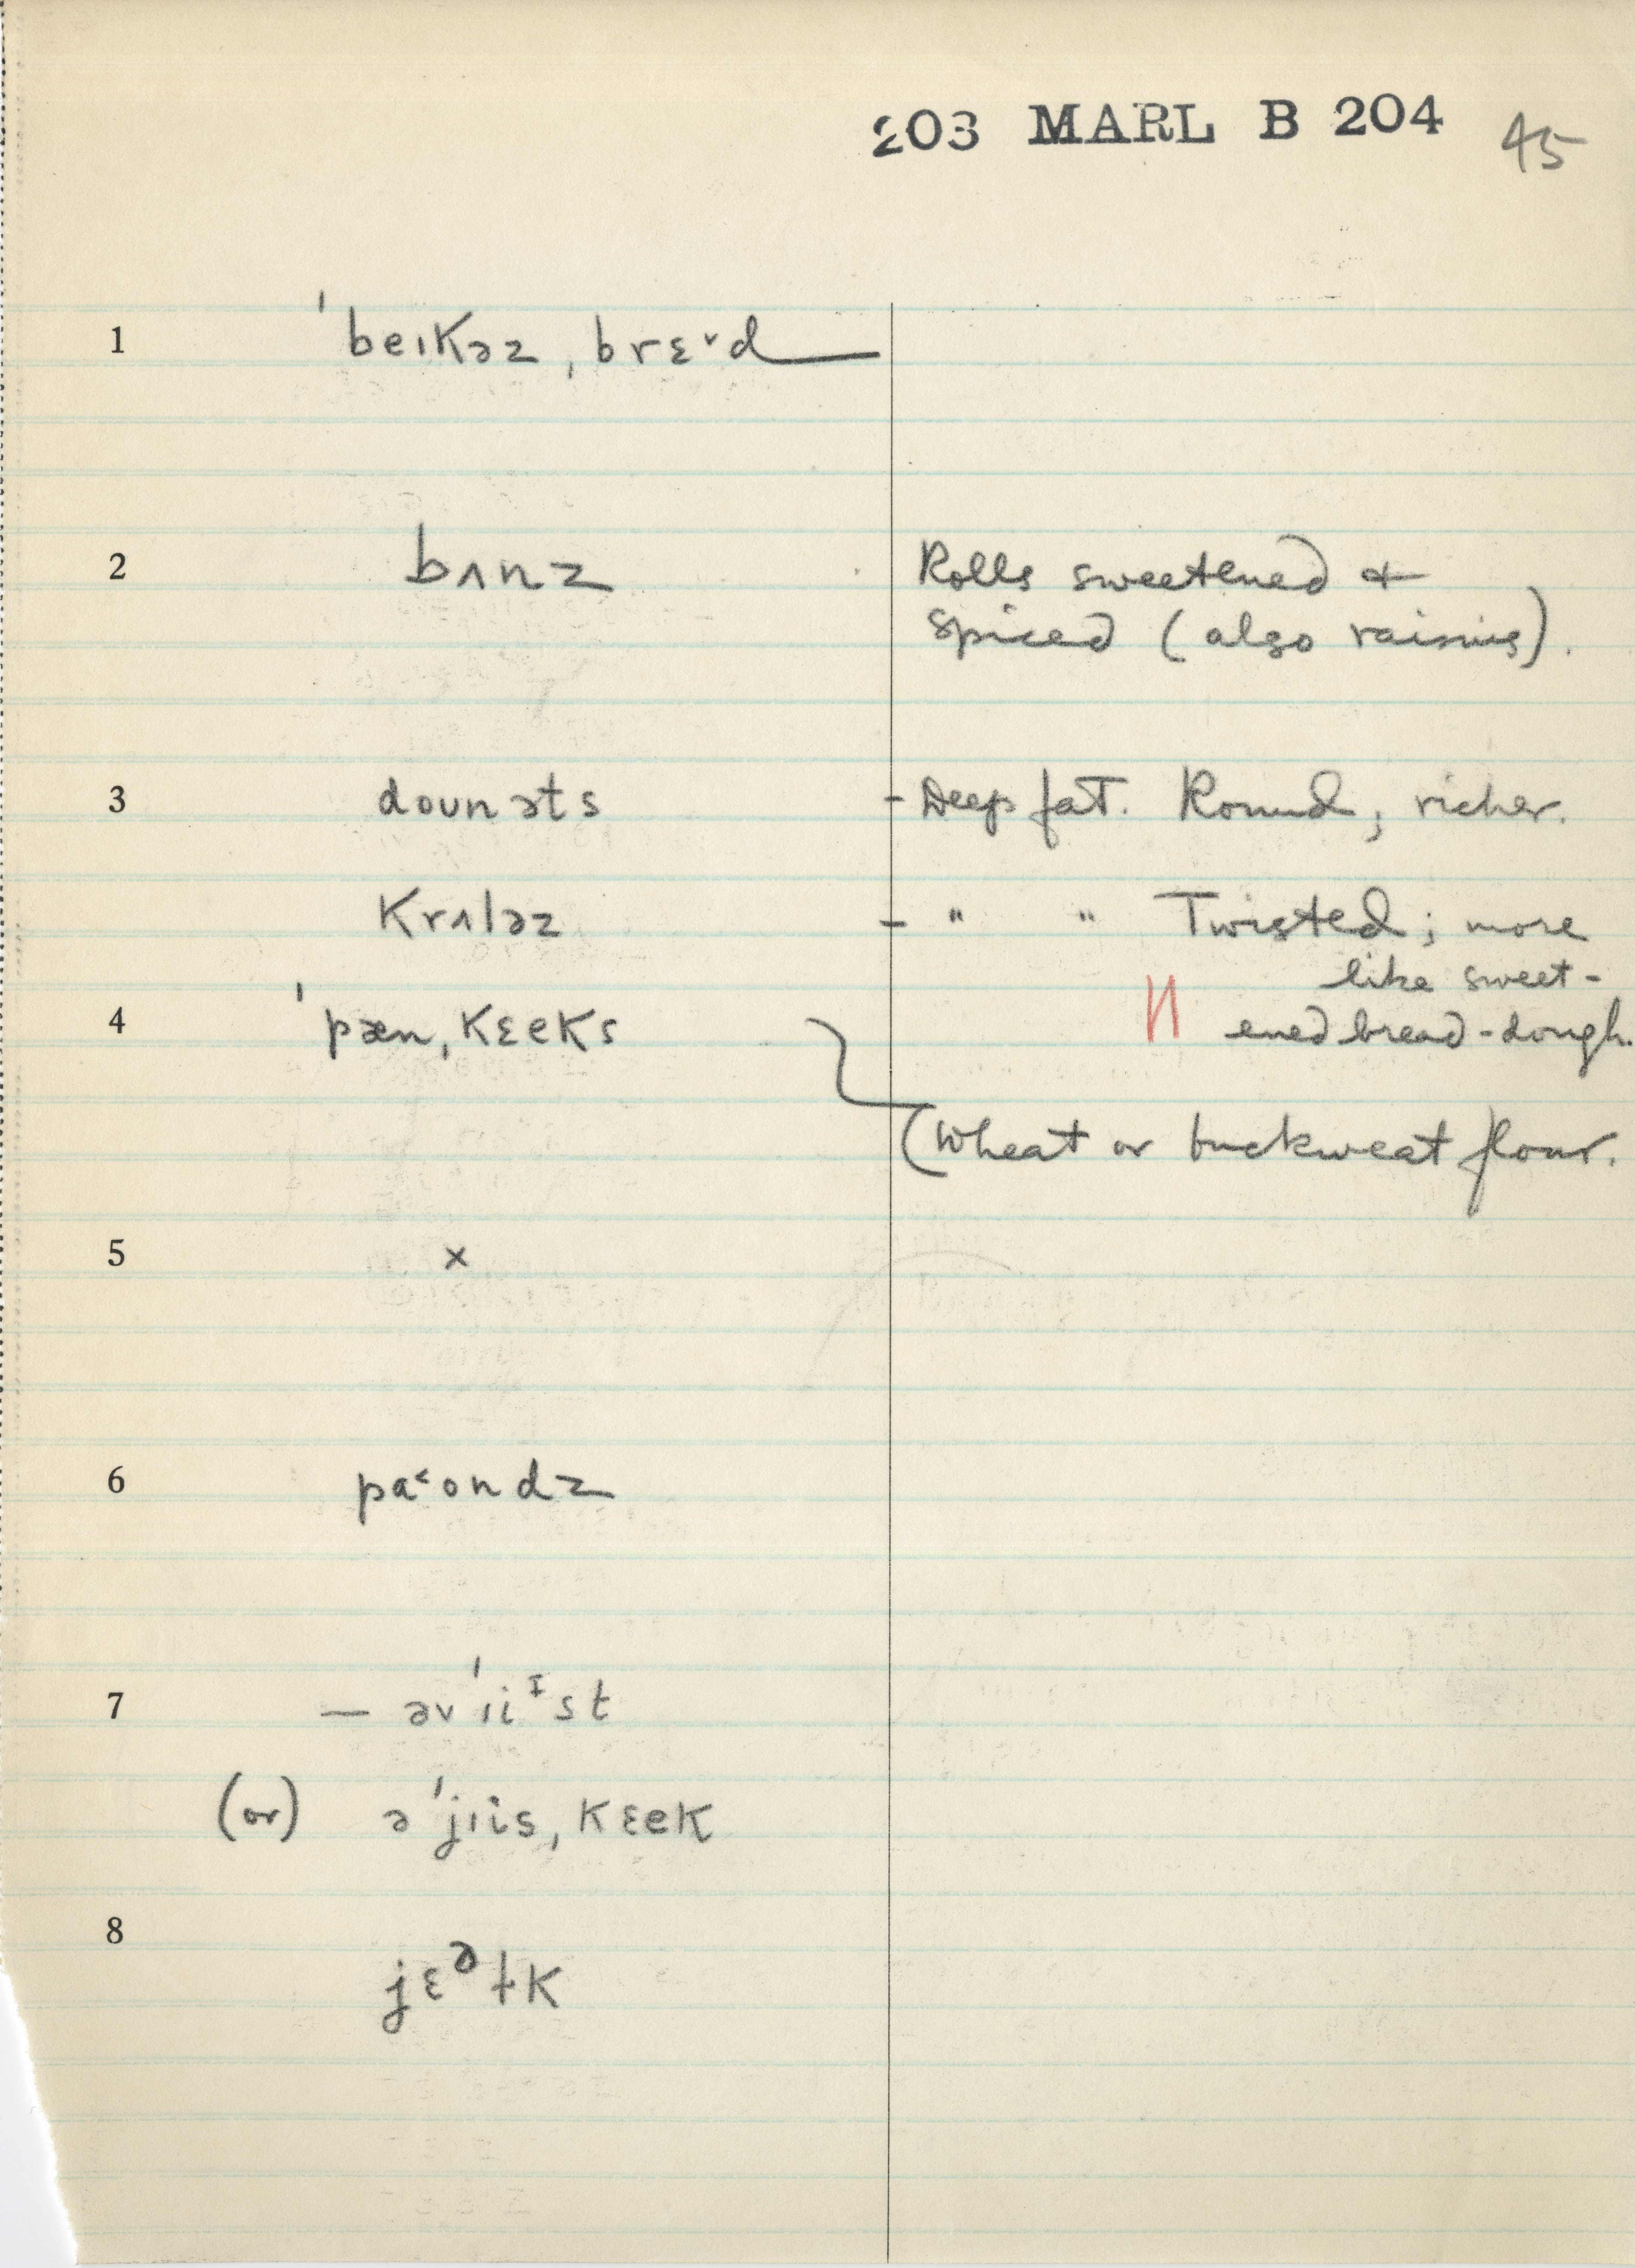 203 MARL B 204 45
1 ˈbeɪkəz ˌbrɛ˅d
2 bʌnz Rolls sweetened &
spiced (also raisins).
3 doʊnəts - Deep fat. Round; richer.
krʌləz - " " Twisted; more
like sweet-
4 ˈpænˌkɛeks ened bread-dough.
(Wheat or buckweat flour.
5 x
6 pa˂ondz
7 — əvˈɪiᶦst
(or) əˈjɪisˌkɛek
8 jɛᵊɫk